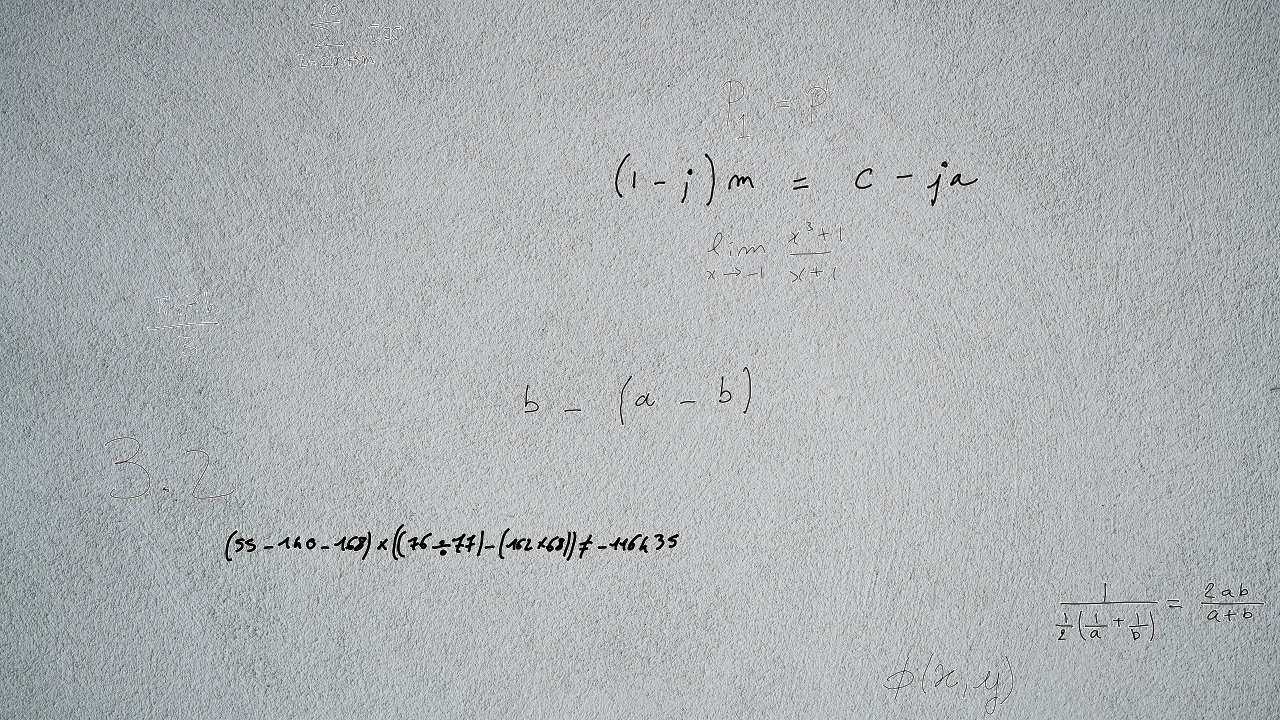 P_1 = p'
(1 - j) m = c - ja
lim x→-1 \frac{x^3+1}{x+1}
b - (a - b)
3.2
(55 - 140 - 168) × ((76 ÷ 77) - (162 × 68)) ≠ -116435
\frac{1}{\frac{1}{2}(\frac{1}{a} + \frac{1}{b})} = \frac{2ab}{a+b}
ϕ(x, y)